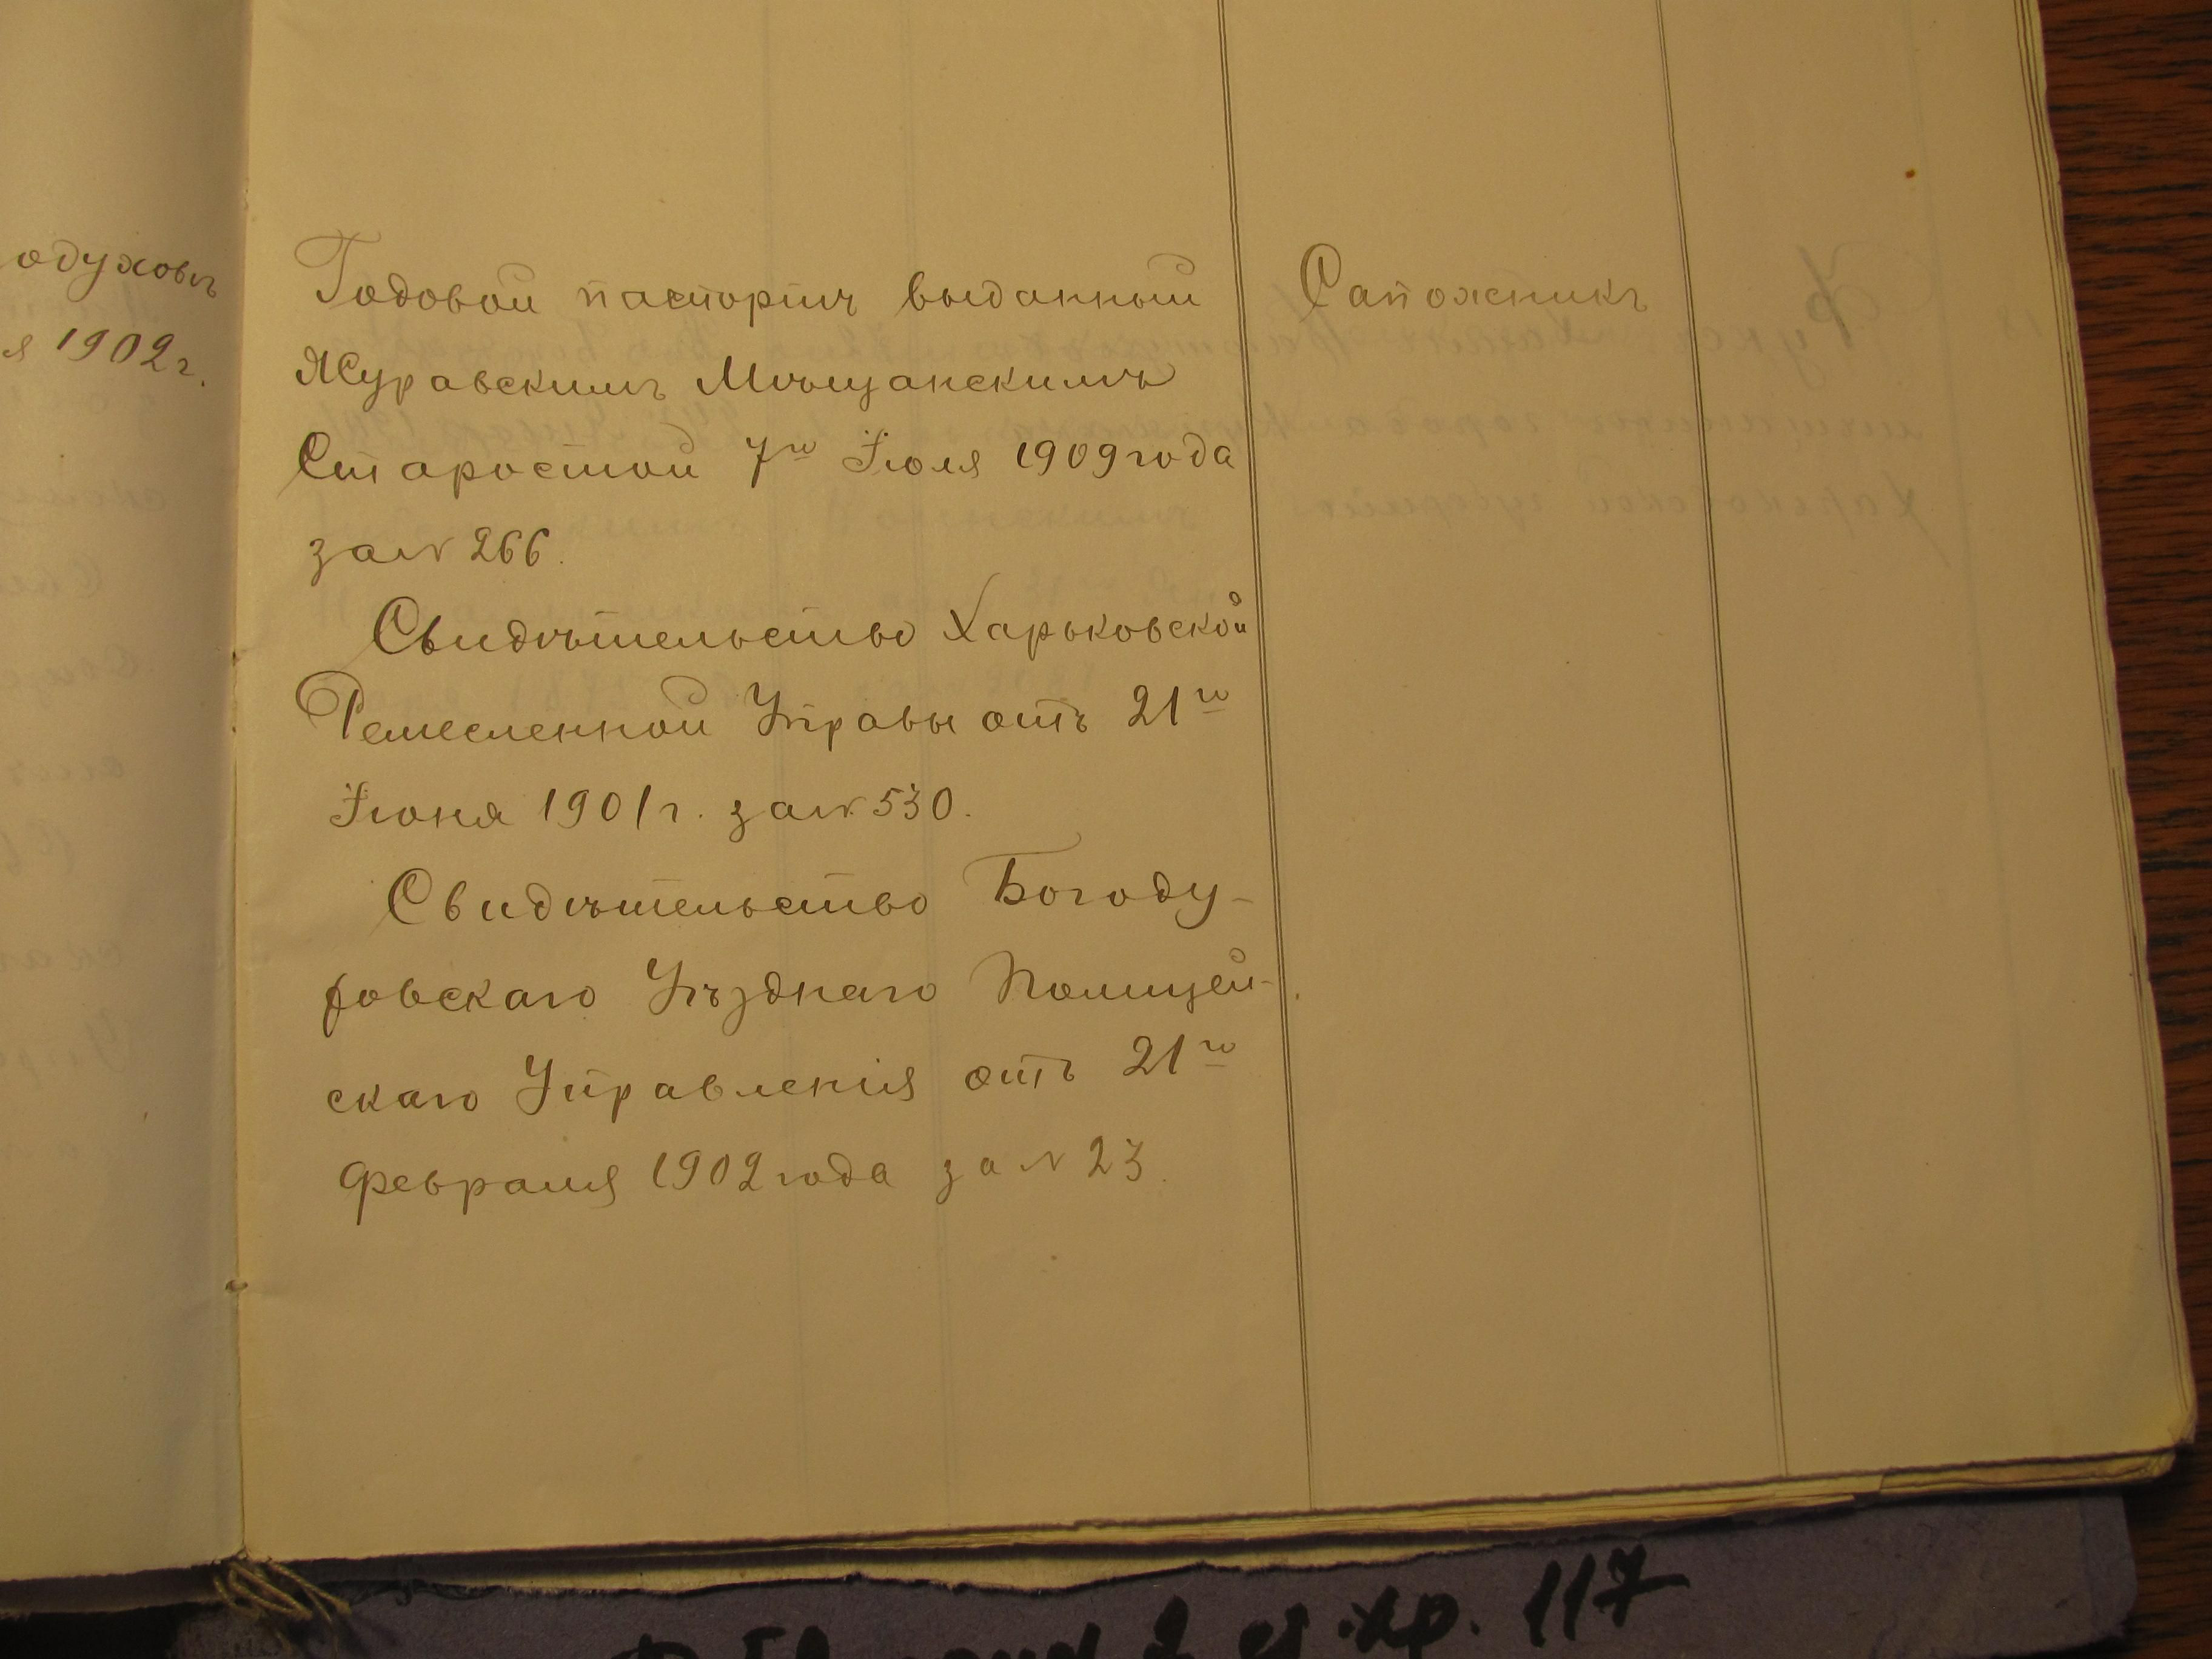 одуховъ
я 1902 г.
Годовой паспортъ выданный
Журавскимъ Мѣщанскимъ
Старостой 7го Іюля 1909 года
за № 266.
Свидѣтельство Харьковской
Ремесленной Управы отъ 21го
Іюня 1901 г. за № 530.
Свидѣтельство Богоду-
ховскаго Уѣзднаго Полицей-
скаго Управленія отъ 21го
Февраля 1902 года за № 23.
Сапожникъ
ед. хр. 117